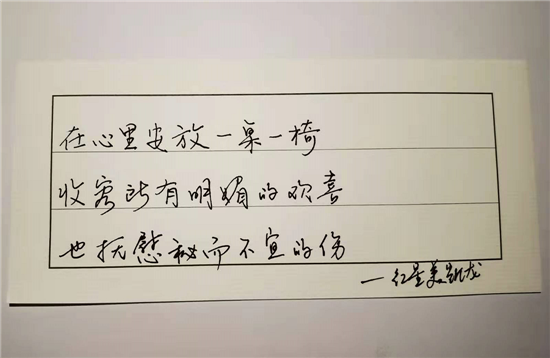 在心里安放一桌一椅
收容所有明媚的欢喜
也抚慰秘而不宣的伤
—红星美凯龙